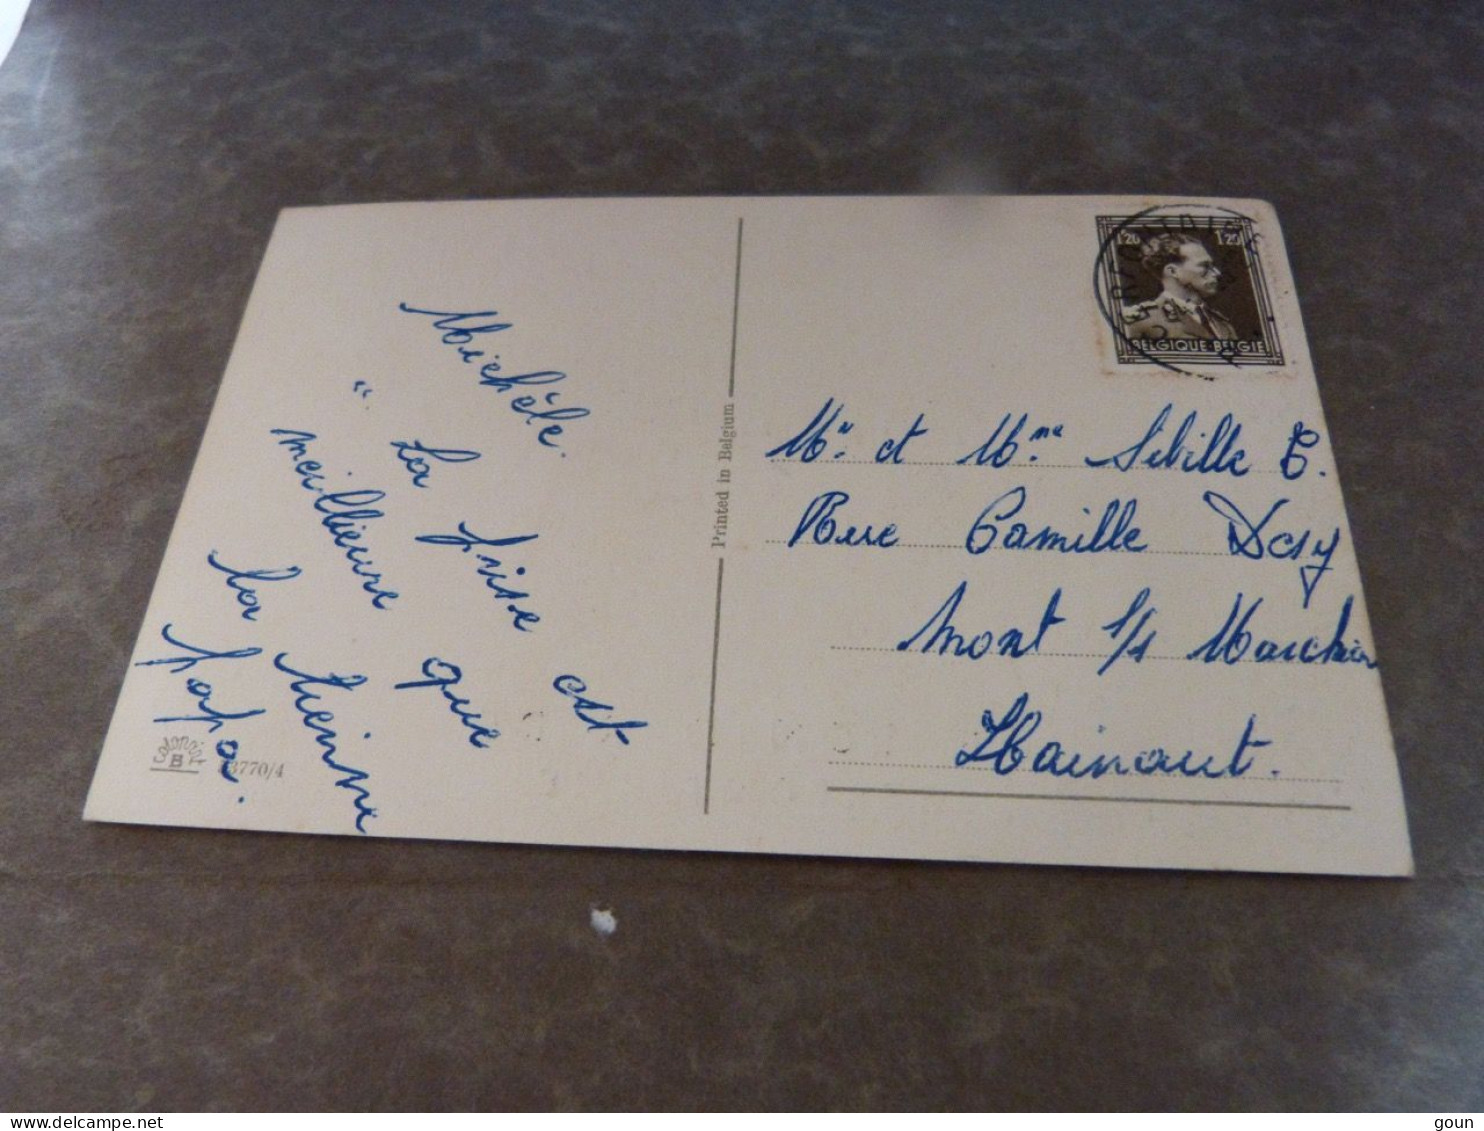 Michèle.
" La frise est
meilleure que
la tienne
papa.
Colorprint
B
3770/4
Printed in Belgium
1.20 1.20
BELGIQUE·BELGIE
Mr. et Mme Sebille E.
Rue Camille Desy
Mont s/s Marchien
Hainaut.
delcampe.net
goun